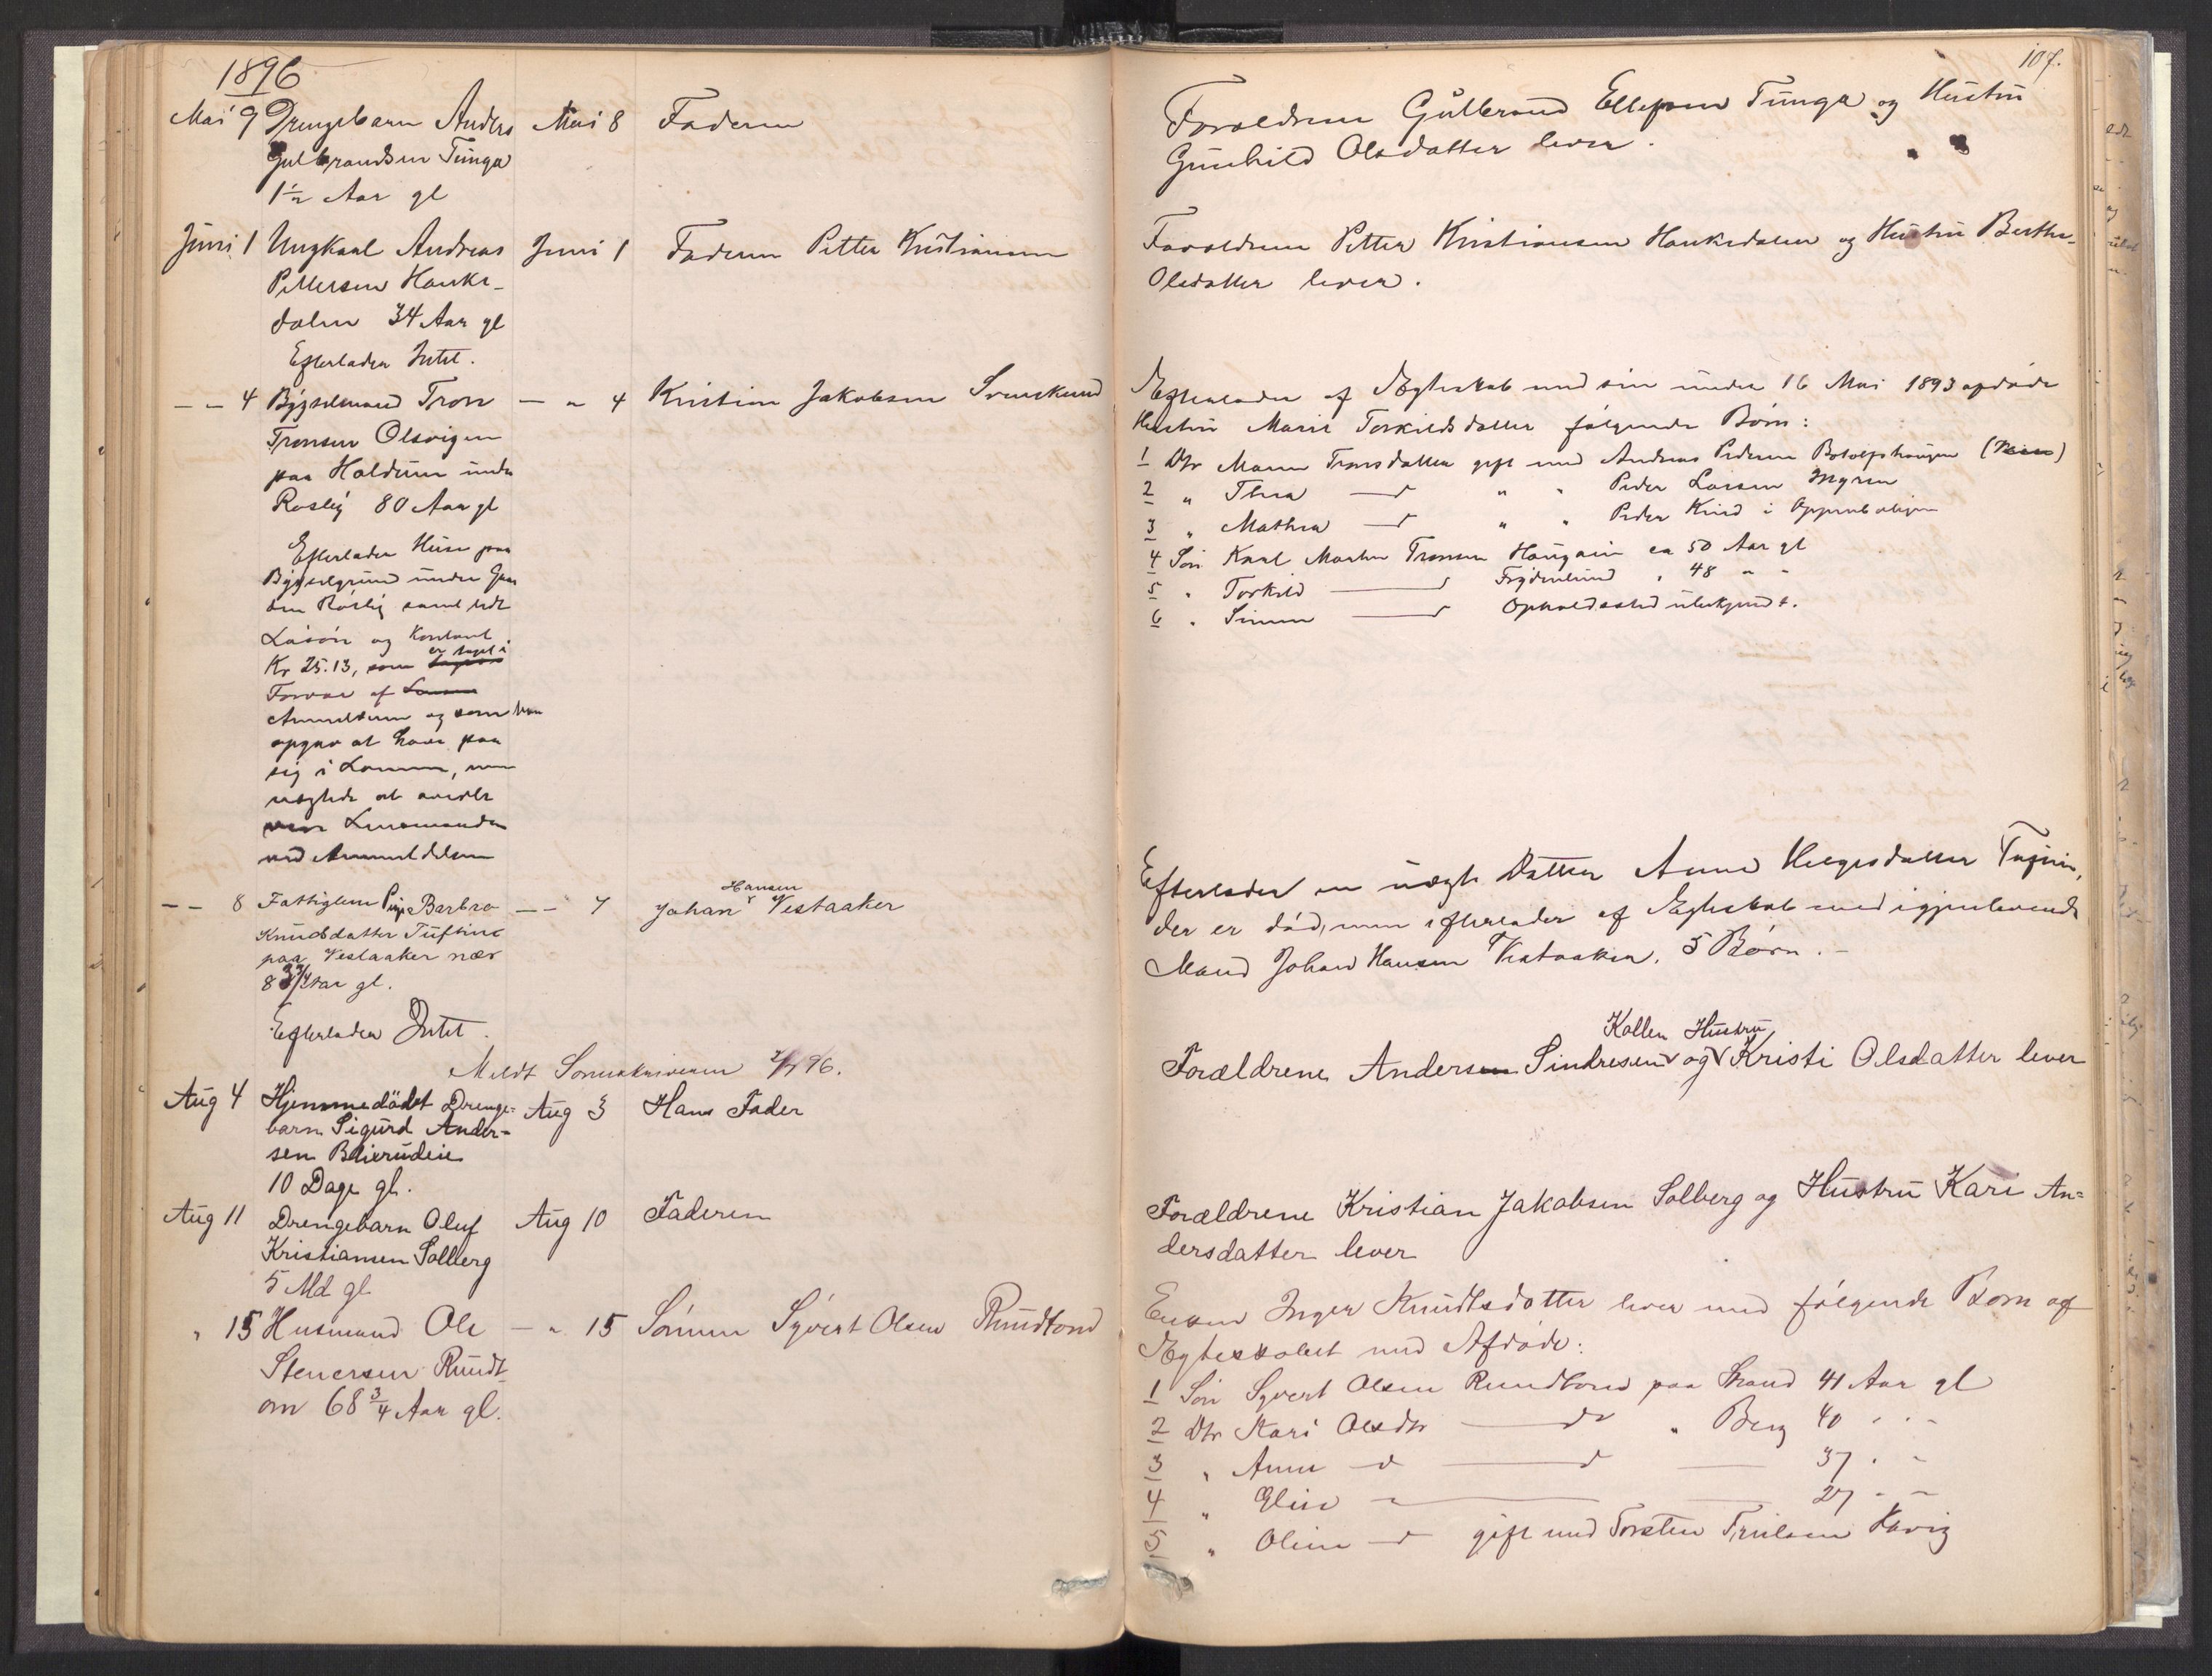 1896
Mai 9 Drengebarn Anders Mai 8 Faderen
Gulbrandsen Tunga
1 1/2 Aar gl
Juni 1 Ungkarl Andreas Juni 1 Faderen Petter Kristiansen
Pettersen Hauke-
dalen 34 Aar gl
Efterlader Intet.
— „ 4 Bygselmand Tron — „ 4 Kristian Jakobsen
Tronsen Olsvigen
paa Haldum under
Roslig 80 Aar gl
Efterlader Huse paa
Bygselgrund under Gaar
den Røslig samt lidt
Løsøre og Kontant
er taget i
Kr 25.13, som
Forvar af
Anmelderen og som han
opgav at have paa
sig i Lommen, men
nægtede at
Lensmanden
ved Anmeldelsen
— „ 8 Fattiglem Pige Barbro — „ 7 Johan Hansen Vestaaker
Knudsdatter Tuftin
paa Vestaaker nær
83 3/4 Aar gl.
Efterlader Intet.
Meldt Sorenskriveren 96.
Aug 4 Hjemmedödt Drenge- Aug 3 Hans Fader
barn Sigurd Ander-
sen
10 Dage gl.
Aug 11 Drengebarn Oluf Aug 10 Faderen
Kristiansen Solberg
5 Md gl
„ 15 Husmand Ole — „ 15 Sønnen Syvert Olsen Rundtom
Stenersen Rundt-
om 68 3/4 Aar gl.
107.
Forældrene Gulbrand Ellefsen Tunga og Hustru
Gunhild Olsdatter lever.
Forældrene Petter Kristiansen Haukedalen og Hustru Berthe
Olsdatter lever.
Efterlader af Ægteskab med sin under 16 Mai 1893 afdøde
Hustru Marie Torkildsdatter følgende Børn:
1 Dtr Maren Tronsdatter gift med Andreas Pedersen
2 „ Thea — d „ „ Peder Larsen Myren
3 „ Mathea — d „ „ Peder i
4 Søn Karl Morten Tronsen Haugan ca 50 Aar gl
5 „ Torkild — d Frydenlund „ 48 „ „
6 „ Simen — d Opholdssted ubekjendt.
Efterlader en uægte Datter Anne Helgesdatter Tuftin,
der er död, men efterlader af Ægteskab med igjenlevende
Mand Johan Hansen Vestaaker, 5 Børn. –
Kollen Hustru
Forældrene Andersen Sindresen og Kristi Olsdatter lever
Forældrene Kristian Jakobsen Solberg og Hustru Kari An=
dersdatter lever
Enken Inger Knudtsdatter lever med følgende Børn af
Ægteskabet med Afdøde:
1 Søn Syvert Olsen Rundtom paa Strand 41 Aar gl
2 Dtr Kari Olsdtr — do „ Berg 40 „ „
3 „ Anne — d — d — 37 „ „
4 „ Elin — — 27 „ „
5 „ Oline — d gift med Torsten Trulsen